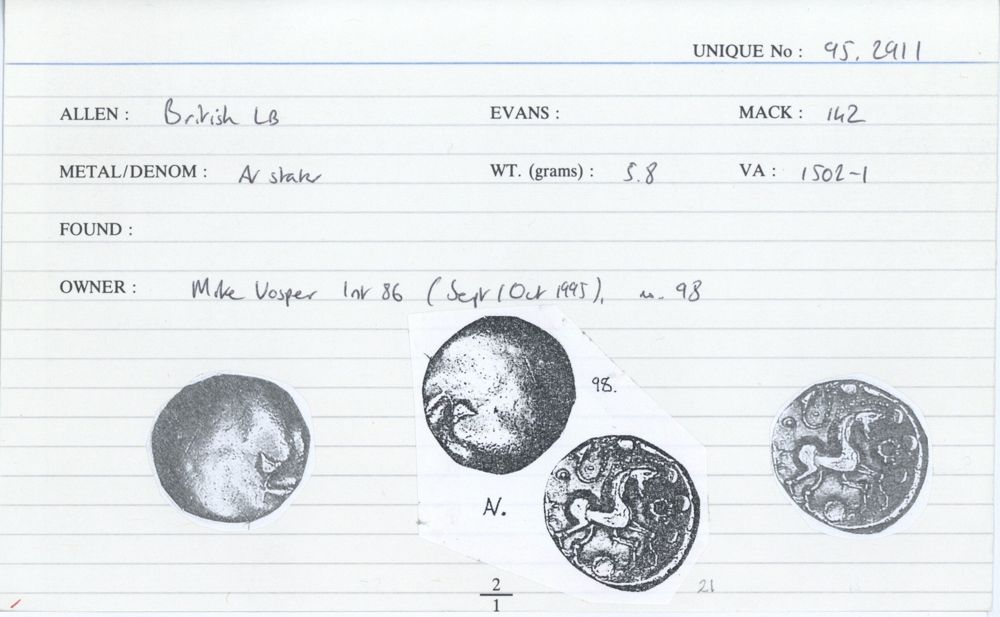 UNIQUE No : 95. 2911
ALLEN : British LB EVANS : MACK : 142
METAL/DENOM : AV stater WT. (grams) : 5.8 VA : 1502-1
FOUND :
OWNER : Mike Vosper Int 86 (Sept/Oct 1995), no. 98
98.
AV.
2
1
21